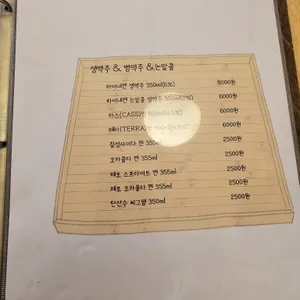 생맥주 & 병맥주 & 논알콜
하이네켄 생맥주 350ml(5%) 8000원
하이네켄 논알콜 병맥주 6000원
카스(CASS) 6000원
테라(TERRA) 6000원
칠성사이다 캔 355ml 2500원
코카콜라 캔 355ml 2500원
제로 스프라이트 캔 355ml 2500원
제로 코카콜라 캔 355ml 2500원
탄산수 씨그램 350ml 2500원